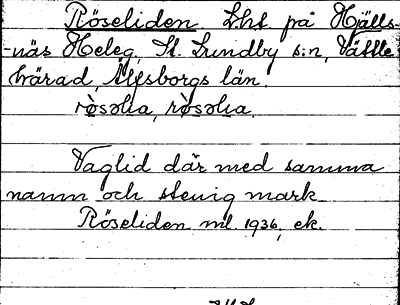 Röseliden. Lht på Hjälls-
-näs Heleg, St. Lundby s:n, Vättle
härad, Älvsborgs län.
ròsəlıa, ròsəlıa.
Väglid där med samma
namn och stenig mark.
Röseliden ml. 1936, ek.